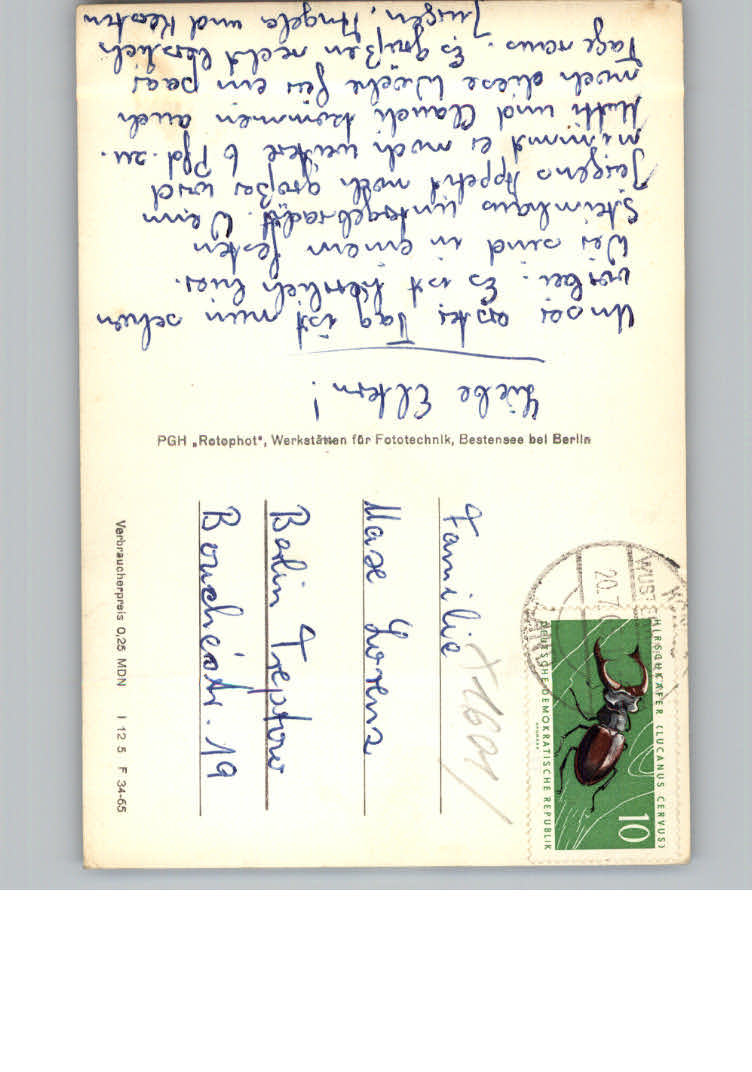 Liebe Eltern!
Unser erster Tag ist nun schon
vorbei. Es ist herrlich hier.
Wir sind in einem festen
Steinhaus untergebracht. Wenn
Jürgens Appetit noch größer wird
nimmt er noch weitere 6 Pfd. zu.
Mutti und Claudi kommen auch
noch diese Woche für ein paar
Tage raus. Es grüßen recht herzlich
Jürgen, Angela und Kersten
PGH „Rotophot“, Werkstätten für Fototechnik, Bestensee bei Berlin
Familie
Max Lorenz
Berlin Treptow
Bouchéstr. 19
Verbraucherpreis 0,25 MDN I 12 5 F 34-65
HIRSCHKÄFER (LUCANUS CERVUS)
DEUTSCHE DEMOKRATISCHE REPUBLIK
10
20.7